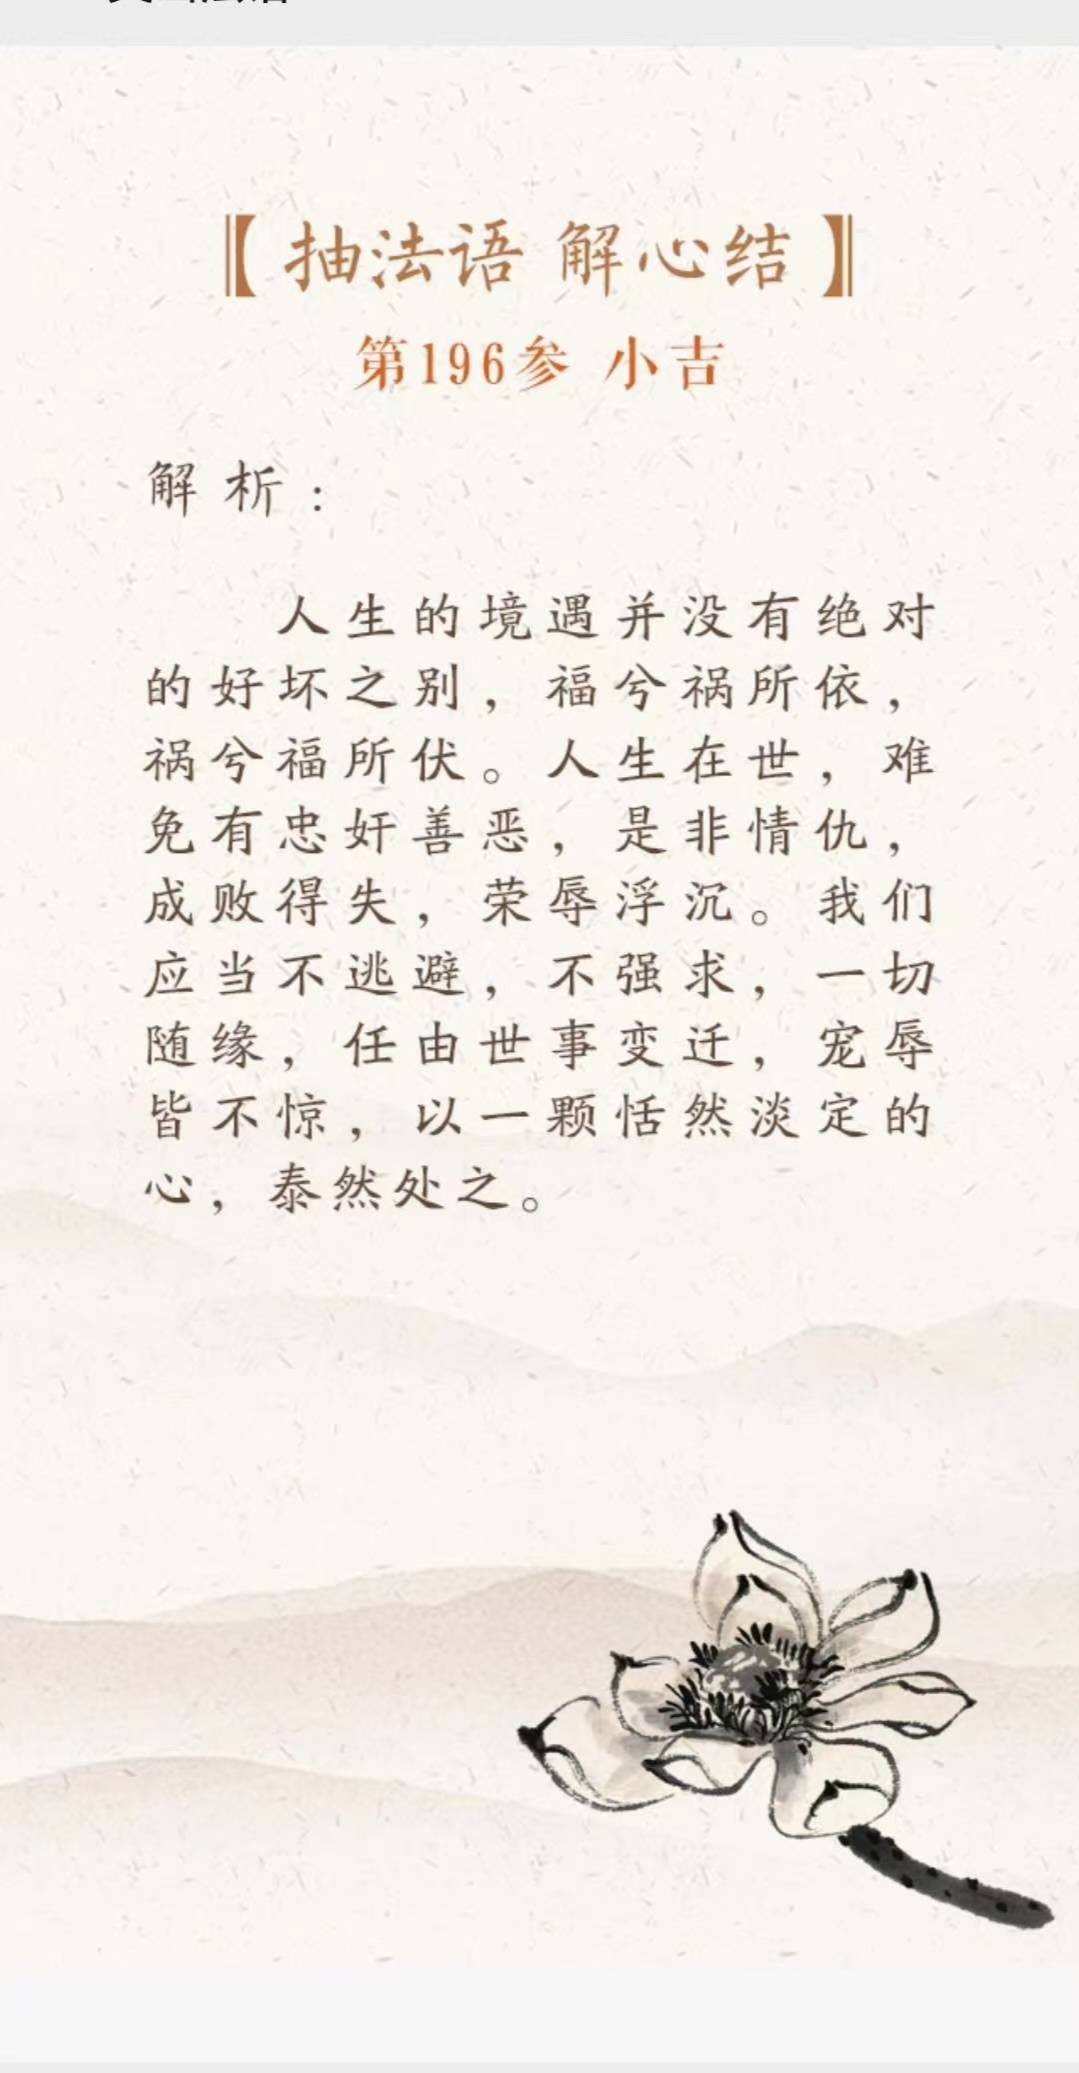 【抽法语 解心结】
第196参 小吉
解析：
人生的境遇并没有绝对
的好坏之别，福兮祸所依，
祸兮福所伏。人生在世，难
免有忠奸善恶，是非情仇，
成败得失，荣辱浮沉。我们
应当不逃避，不强求，一切
随缘，任由世事变迁，宠辱
皆不惊，以一颗恬然淡定的
心，泰然处之。